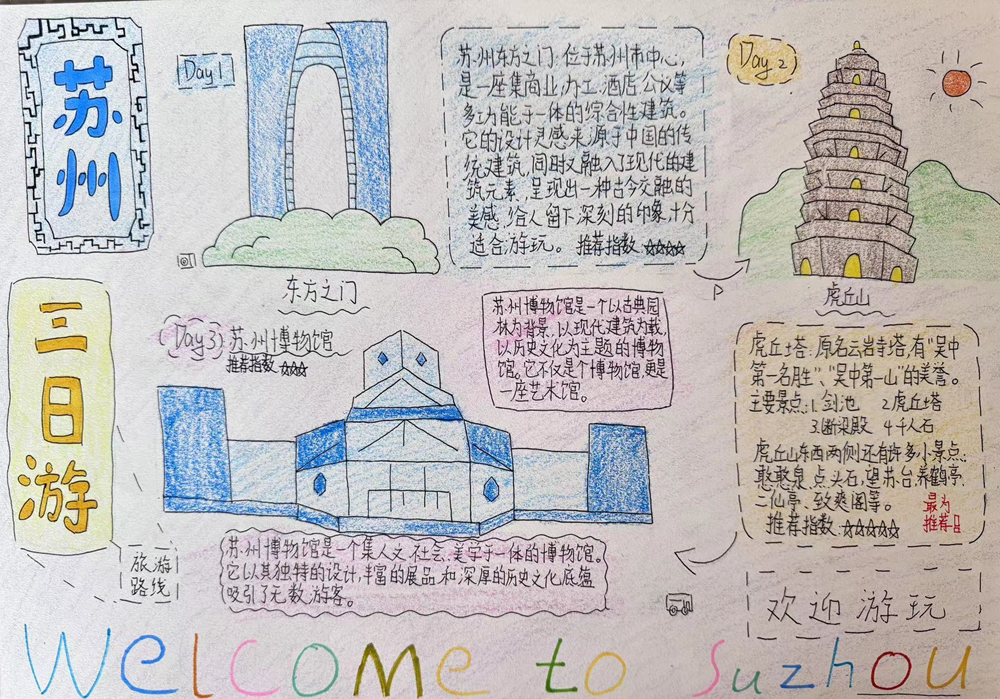 苏
州
三
日
游
Day1
东方之门
苏州东方之门:位于苏州市中心,
是一座集商业,办工,酒店,公议等
多功能于一体的综合性建筑。
它的设计灵感来源于中国的传
统建筑,同时又融入了现代的建
筑元素,呈现出一种古今交融的
美感,给人留下深刻的印象,十分
适合游玩。 推荐指数 ☆☆☆☆
Day2
虎丘山
虎丘塔:原名云岩寺塔,有“吴中
第一名胜”、“吴中第一山”的美誉。
主要景点:1.剑池 2.虎丘塔
3.断梁殿 4.千人石
虎丘山东西两侧还有许多小景点:
憨憨泉,点头石,望苏台,养鹤亭,
二仙亭、致爽阁等。
推荐指数 ☆☆☆☆☆
最为
推荐!
Day3 苏州博物馆
推荐指数 ☆☆☆
苏州博物馆是一个以古典园
林为背景,以现代建筑为载,
以历史文化为主题的博物
馆。它不仅是个博物馆,更是
一座艺术馆。
苏州博物馆是一个集人文,社会,美学于一体的博物馆。
它以其独特的设计,丰富的展品,和深厚的历史文化底蕴
吸引了无数游客。
旅游
路线
欢迎游玩
Welcome to Suzhou